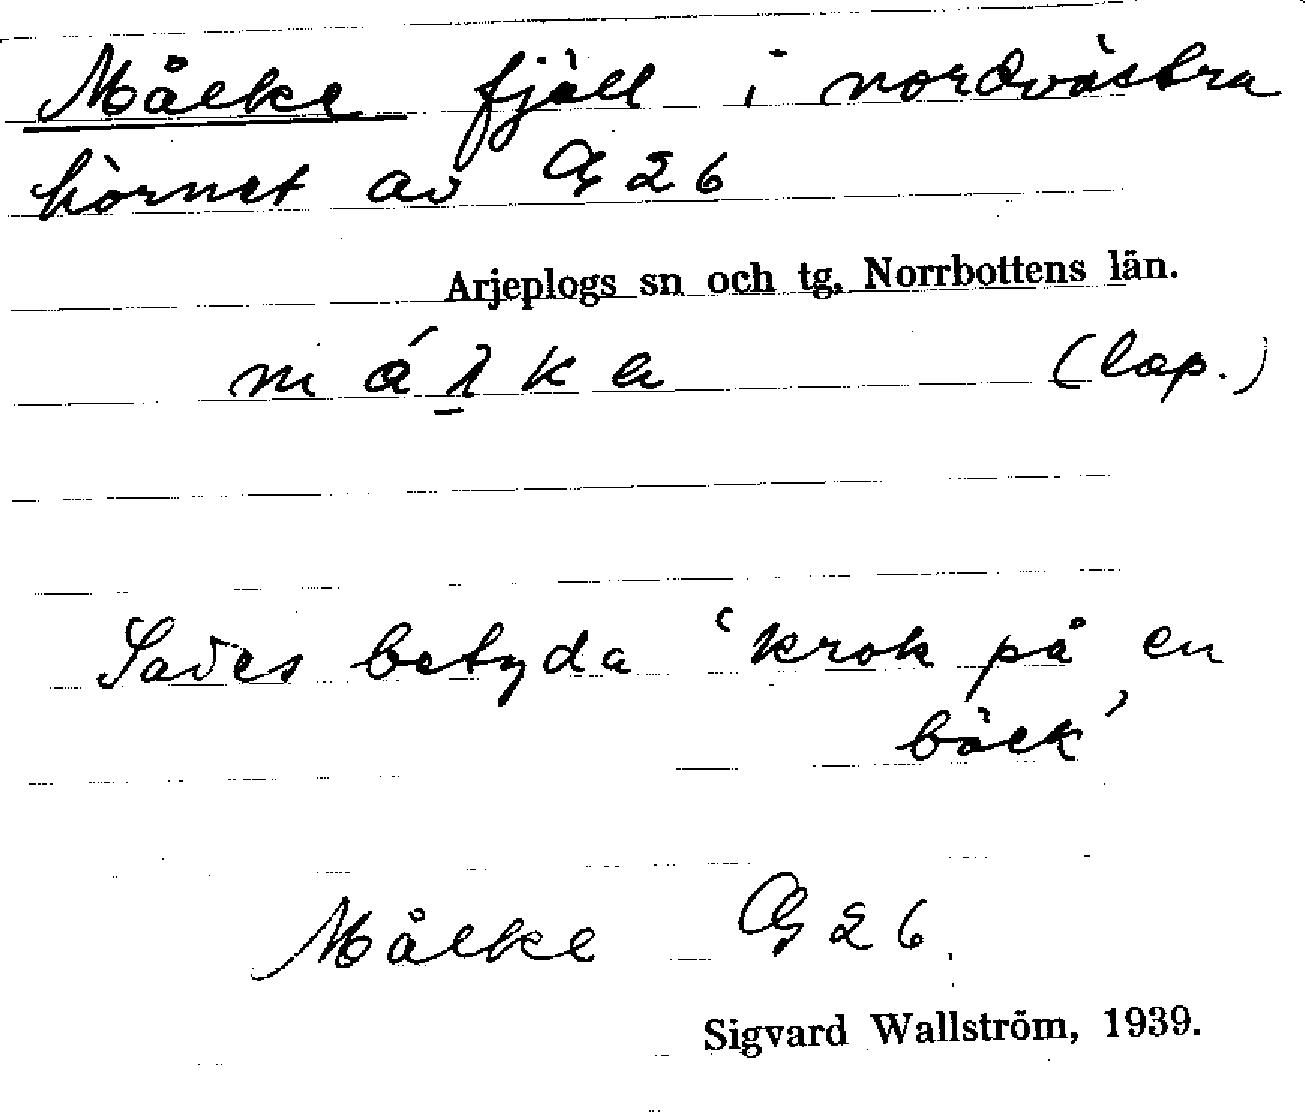 Målke fjäll i nordvästra
hörnet av G 26
Arjeplogs sn och tg, Norrbottens län.
m á λ̱ k a (lap.)
Sades betyda 'krok på en
bäck'
Målke G 26.
Sigvard Wallström, 1939.